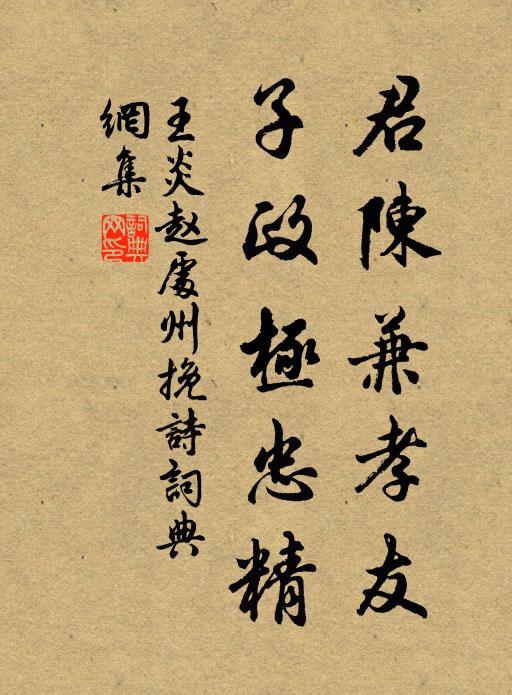 君陳兼孝友
子政極忠精
王炎赵處州挽詩詞典
網集
詞典
网印